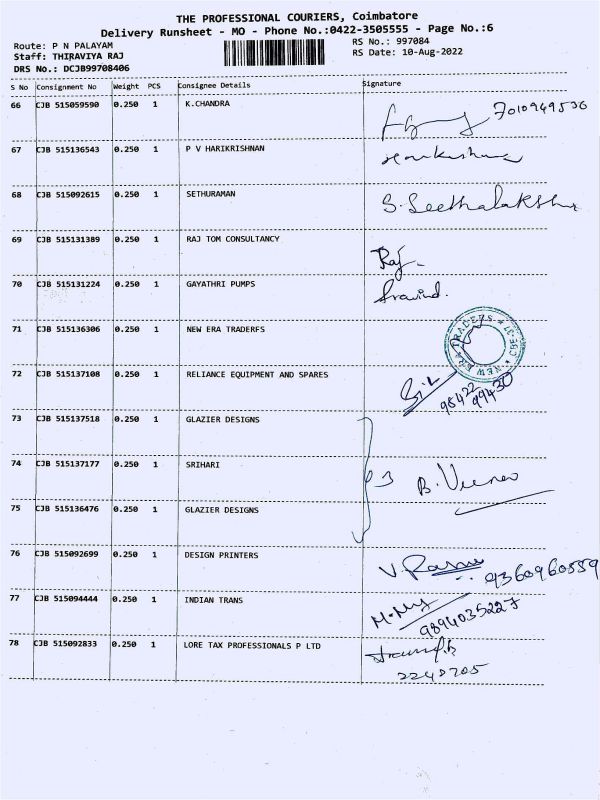 THE PROFESSIONAL COURIERS, Coimbatore
Delivery Runsheet - MO - Phone No.:0422-3505555 - Page No.:6
Route: P N PALAYAM
RS No.: 997084
Staff: THIRAVIYA RAJ
RS Date: 10-Aug-2022
DRS No.: DCJB99708406
S No Consignment No Weight PCS Consignee Details Signature
66 CJB 515059590 0.250 1 K.CHANDRA 7010949536
67 CJB 515136543 0.250 1 P V HARIKRISHNAN
68 CJB 515092615 0.250 1 SETHURAMAN S. Seethalakshm
69 CJB 515131389 0.250 1 RAJ TOM CONSULTANCY Raj
70 CJB 515131224 0.250 1 GAYATHRI PUMPS Aravind.
71 CJB 515136306 0.250 1 NEW ERA TRADERFS NEW ERA TRADERS * CBE-37 *
72 CJB 515137108 0.250 1 RELIANCE EQUIPMENT AND SPARES 98422 99430
73 CJB 515137518 0.250 1 GLAZIER DESIGNS
74 CJB 515137177 0.250 1 SRIHARI 3 B.
75 CJB 515136476 0.250 1 GLAZIER DESIGNS
76 CJB 515092699 0.250 1 DESIGN PRINTERS 9360960559
77 CJB 515094444 0.250 1 INDIAN TRANS 9894035227
78 CJB 515092833 0.250 1 LORE TAX PROFESSIONALS P LTD